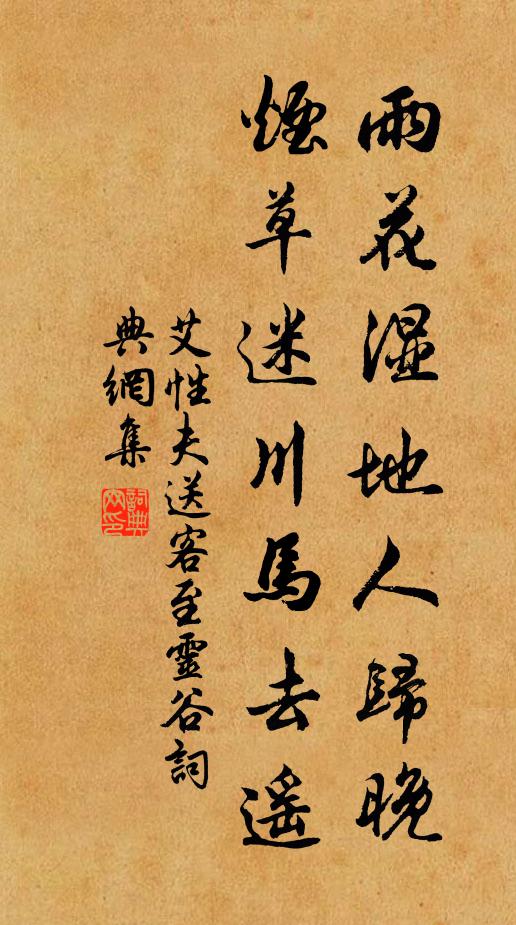 雨花湿地人歸晚
煙草迷川馬去遥
艾性夫送客至靈谷詞
典網集
詞典網印